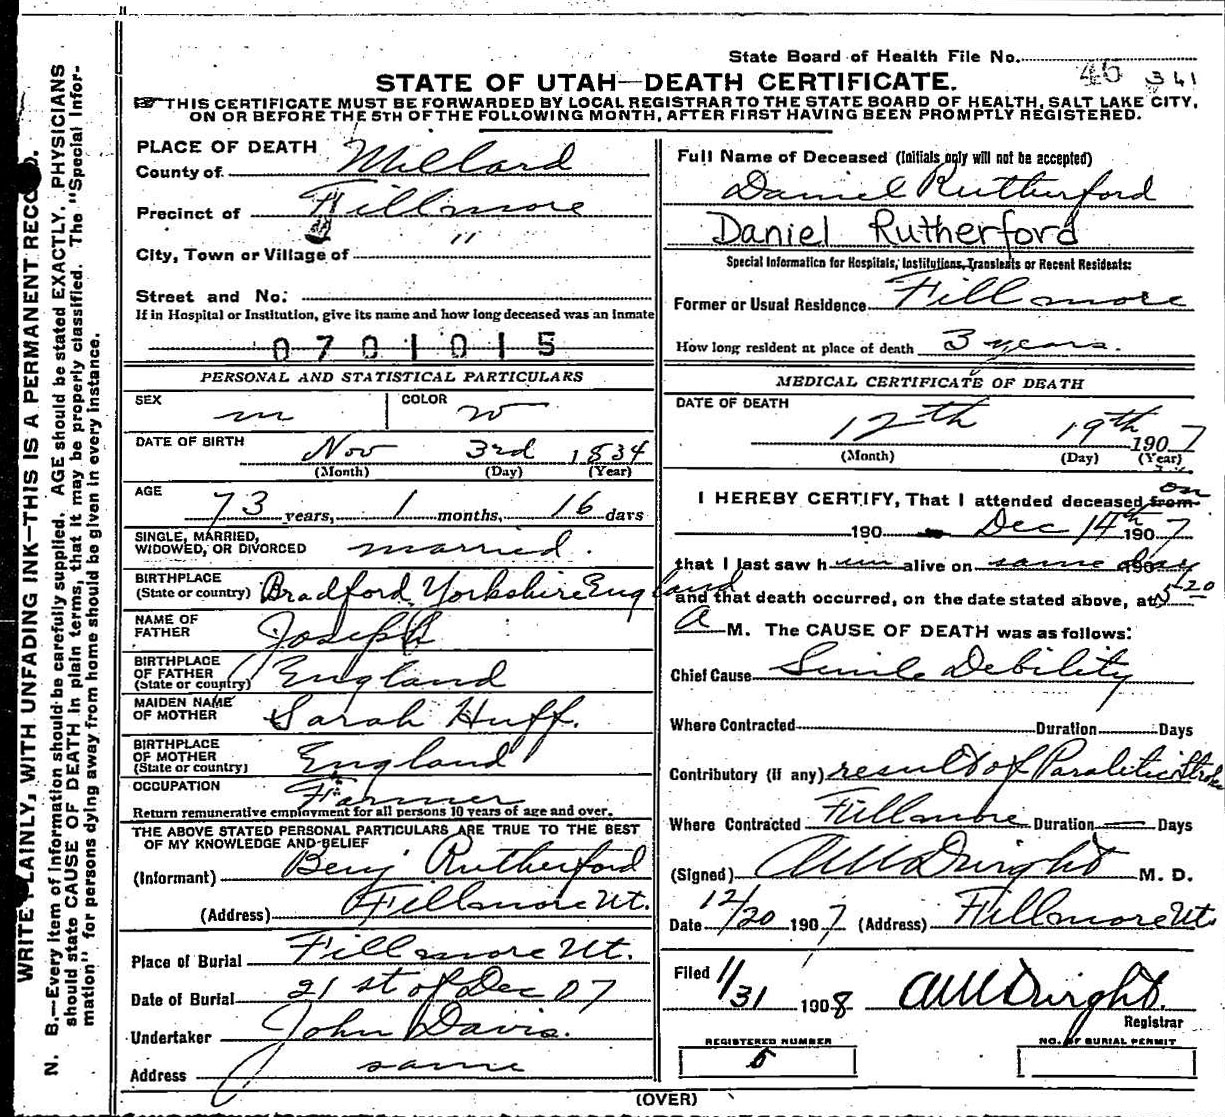 State Board of Health File No. 45 341
STATE OF UTAH—DEATH CERTIFICATE.
THIS CERTIFICATE MUST BE FORWARDED BY LOCAL REGISTRAR TO THE STATE BOARD OF HEALTH, SALT LAKE CITY,
ON OR BEFORE THE 5TH OF THE FOLLOWING MONTH, AFTER FIRST HAVING BEEN PROMPTLY REGISTERED.
WRITE PLAINLY, WITH UNFADING INK—THIS IS A PERMANENT RECORD.
N. B.—Every item of information should be carefully supplied. AGE should be stated EXACTLY. PHYSICIANS
should state CAUSE OF DEATH in plain terms, that it may be properly classified. The "Special Infor-
mation" for persons dying away from home should be given in every instance.
PLACE OF DEATH
County of Millard
Precinct of Fillmore
City, Town or Village of "
Street and No:
If in Hospital or Institution, give its name and how long deceased was an inmate
0701015
PERSONAL AND STATISTICAL PARTICULARS
SEX m COLOR w
DATE OF BIRTH Nov 3rd 1834
(Month) (Day) (Year)
AGE
73 years, 1 months, 16 days
SINGLE, MARRIED,
WIDOWED, OR DIVORCED married.
BIRTHPLACE
(State or country) Bradford Yorkshire England
NAME OF
FATHER Joseph
BIRTHPLACE
OF FATHER
(State or country) England
MAIDEN NAME
OF MOTHER Sarah Huff.
BIRTHPLACE
OF MOTHER
(State or country) England
OCCUPATION Farmer
Return remunerative employment for all persons 10 years of age and over.
THE ABOVE STATED PERSONAL PARTICULARS ARE TRUE TO THE BEST
OF MY KNOWLEDGE AND BELIEF
(Informant) Benj Rutherford
(Address) Fillmore Ut.
Place of Burial Fillmore Ut.
Date of Burial 21st of Dec 07
Undertaker John Davis.
Address same
Full Name of Deceased (Initials only will not be accepted)
Daniel Rutherford
Daniel Rutherford
Special Information for Hospitals, Institutions, Transients or Recent Residents:
Former or Usual Residence Fillmore
How long resident at place of death 3 years.
MEDICAL CERTIFICATE OF DEATH
DATE OF DEATH
12th 19th 1907
(Month) (Day) (Year)
I HEREBY CERTIFY, That I attended deceased from on
190 Dec 14th 1907
that I last saw him alive on same day 190
and that death occurred, on the date stated above, at 5-20
A M. The CAUSE OF DEATH was as follows:
Chief Cause Senile Debility
Where Contracted Duration Days
Contributory (if any) result of Paralitic Stroke
Where Contracted Fillmore Duration — Days
(Signed) M. D.
Date 12/20 1907 (Address) Fillmore Ut.
Filed 1/31 1908
Registrar
REGISTERED NUMBER
5
NO. OF BURIAL PERMIT
(OVER)